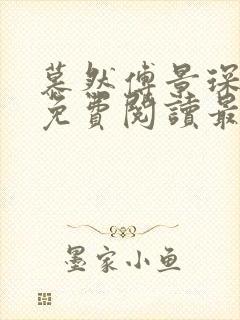 慕然傅景琛
免費閱讀最
墨家小鱼